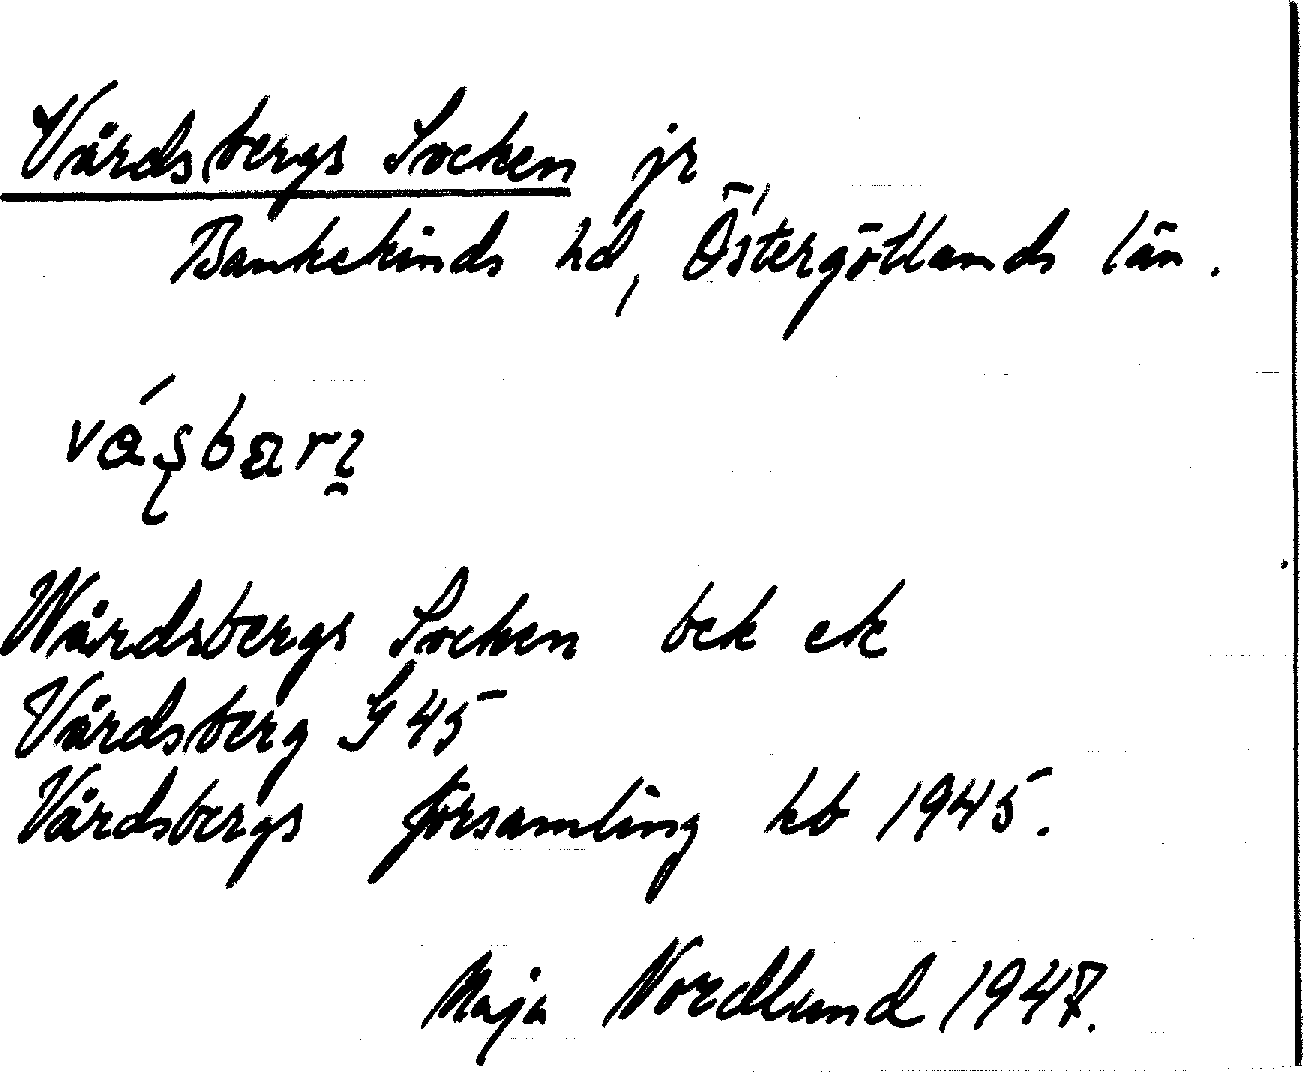 Vårdsbergs Socken jr
Bankekinds hd, Östergötlands län.
Wårdsbergs Socken bek ek
Vårdsberg G 45
Vårdsbergs församling kb 1945.
Maja Nordlund 1947.